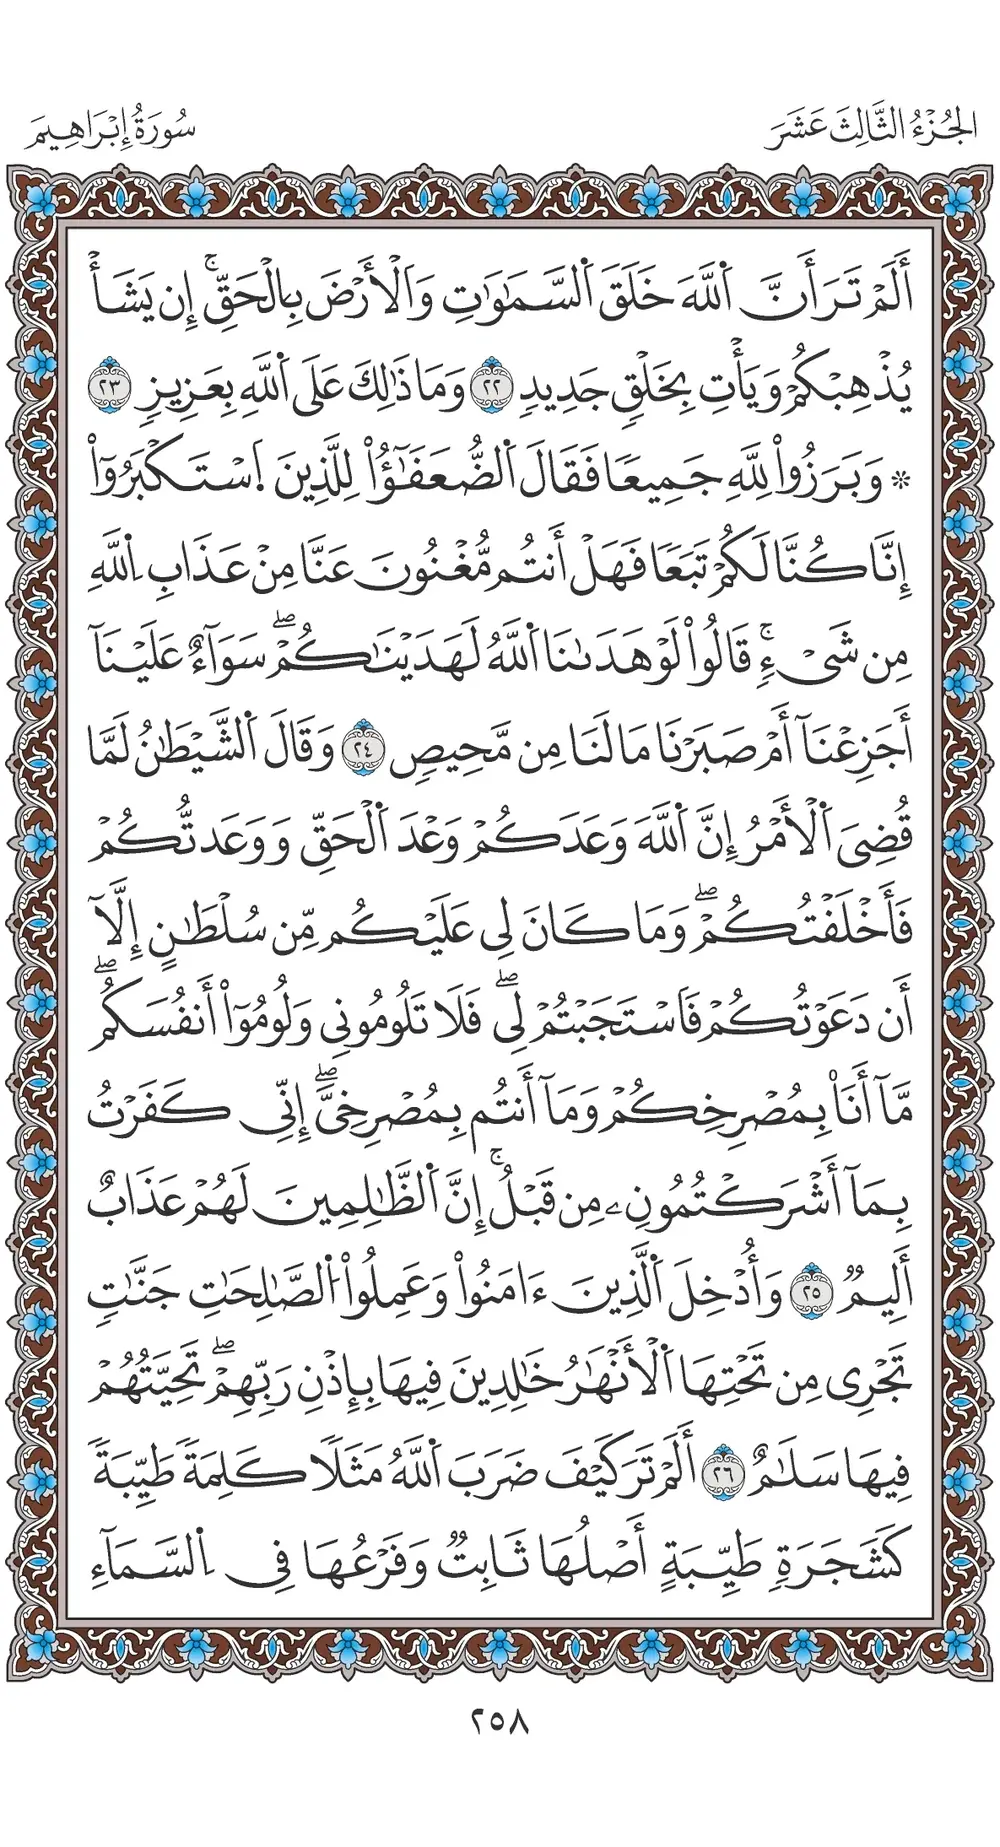 الجُزْءُ الثَّالِثَ عَشَرَ
سُورَةُ إِبْرَاهِيمَ
أَلَمْ تَرَ أَنَّ اَ۬للَّهَ خَلَقَ اَ۬لسَّمَٰوَٰتِ وَالْأَرْضَ بِالْحَقِّۚ إِن يَشَأْ
يُذْهِبْكُمْ وَيَأْتِ بِخَلْقٖ جَدِيدٖ ٢٢ وَمَا ذَٰلِكَ عَلَى اَ۬للَّهِ بِعَزِيزٖ ٢٣
۞ وَبَرَزُواْ لِلَّهِ جَمِيعٗا فَقَالَ اَ۬لضُّعَفَٰٓؤُاْ لِلَّذِينَ اَ۪سْتَكْبَرُوٓاْ
إِنَّا كُنَّا لَكُمْ تَبَعٗا فَهَلْ أَنتُم مُّغْنُونَ عَنَّا مِنْ عَذَابِ اِ۬للَّهِ
مِن شَيْءٖۚ قَالُواْ لَوْ هَدَىٰنَا اَ۬للَّهُ لَهَدَيْنَٰكُمْۖ سَوَآءٌ عَلَيْنَآ
أَجَزِعْنَآ أَمْ صَبَرْنَا مَا لَنَا مِن مَّحِيصٖ ٢٤ وَقَالَ اَ۬لشَّيْطَٰنُ لَمَّا
قُضِيَ اَ۬لْأَمْرُ إِنَّ اَ۬للَّهَ وَعَدَكُمْ وَعْدَ اَ۬لْحَقِّ وَوَعَدتُّكُمْ
فَأَخْلَفْتُكُمْۖ وَمَا كَانَ لِي عَلَيْكُم مِّن سُلْطَٰنٍ إِلَّآ
أَن دَعَوْتُكُمْ فَاسْتَجَبْتُمْ لِيۖ فَلَا تَلُومُونِي وَلُومُوٓاْ أَنفُسَكُمۖ
مَّآ أَنَا۠ بِمُصْرِخِكُمْ وَمَآ أَنتُم بِمُصْرِخِيَّۖ إِنِّي كَفَرْتُ
بِمَآ أَشْرَكْتُمُونِۦ مِن قَبْلُۚ إِنَّ اَ۬لظَّٰلِمِينَ لَهُمْ عَذَابٌ
أَلِيمٞ ٢٥ وَأُدْخِلَ اَ۬لَّذِينَ ءَامَنُواْ وَعَمِلُواْ اُ۬لصَّٰلِحَٰتِ جَنَّٰتٖ
تَجْرِي مِن تَحْتِهَا اَ۬لْأَنْهَٰرُ خَٰلِدِينَ فِيهَا بِإِذْنِ رَبِّهِمْۖ تَحِيَّتُهُمْ
فِيهَا سَلَٰمٌ ٢٦ أَلَمْ تَرَ كَيْفَ ضَرَبَ اَ۬للَّهُ مَثَلٗا كَلِمَةٗ طَيِّبَةٗ
كَشَجَرَةٖ طَيِّبَةٍ أَصْلُهَا ثَابِتٞ وَفَرْعُهَا فِي اِ۬لسَّمَآءِ
٢٥٨